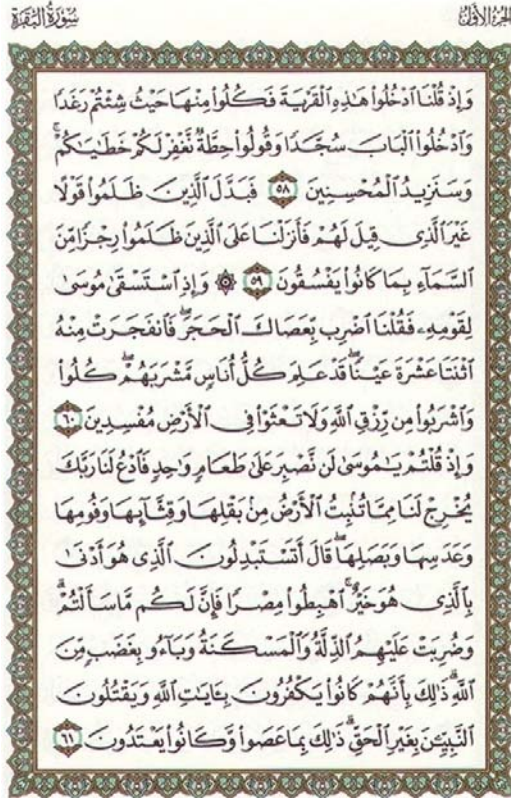 سُورَةُ البَقَرَةِ الجُزْءُ الأَوَّلُ
وَإِذْ قُلْنَا ٱدْخُلُوا۟ هَـٰذِهِ ٱلْقَرْيَةَ فَكُلُوا۟ مِنْهَا حَيْثُ شِئْتُمْ رَغَدًا
وَٱدْخُلُوا۟ ٱلْبَابَ سُجَّدًا وَقُولُوا۟ حِطَّةٌ نَّغْفِرْ لَكُمْ خَطَـٰيَـٰكُمْ ۚ
وَسَنَزِيدُ ٱلْمُحْسِنِينَ ٥٨ فَبَدَّلَ ٱلَّذِينَ ظَلَمُوا۟ قَوْلًا
غَيْرَ ٱلَّذِى قِيلَ لَهُمْ فَأَنزَلْنَا عَلَى ٱلَّذِينَ ظَلَمُوا۟ رِجْزًا مِّنَ
ٱلسَّمَآءِ بِمَا كَانُوا۟ يَفْسُقُونَ ٥٩ ۞ وَإِذِ ٱسْتَسْقَىٰ مُوسَىٰ
لِقَوْمِهِۦ فَقُلْنَا ٱضْرِب بِّعَصَاكَ ٱلْحَجَرَ ۖ فَٱنفَجَرَتْ مِنْهُ
ٱثْنَتَا عَشْرَةَ عَيْنًا ۖ قَدْ عَلِمَ كُلُّ أُنَاسٍ مَّشْرَبَهُمْ ۖ كُلُوا۟
وَٱشْرَبُوا۟ مِن رِّزْقِ ٱللَّهِ وَلَا تَعْثَوْا۟ فِى ٱلْأَرْضِ مُفْسِدِينَ ٦٠
وَإِذْ قُلْتُمْ يَـٰمُوسَىٰ لَن نَّصْبِرَ عَلَىٰ طَعَامٍ وَٰحِدٍ فَٱدْعُ لَنَا رَبَّكَ
يُخْرِجْ لَنَا مِمَّا تُنۢبِتُ ٱلْأَرْضُ مِنۢ بَقْلِهَا وَقِثَّآئِهَا وَفُومِهَا
وَعَدَسِهَا وَبَصَلِهَا ۖ قَالَ أَتَسْتَبْدِلُونَ ٱلَّذِى هُوَ أَدْنَىٰ
بِٱلَّذِى هُوَ خَيْرٌ ۚ ٱهْبِطُوا۟ مِصْرًا فَإِنَّ لَكُم مَّا سَأَلْتُمْ ۗ
وَضُرِبَتْ عَلَيْهِمُ ٱلذِّلَّةُ وَٱلْمَسْكَنَةُ وَبَآءُو بِغَضَبٍ مِّنَ
ٱللَّهِ ۗ ذَٰلِكَ بِأَنَّهُمْ كَانُوا۟ يَكْفُرُونَ بِـَٔايَـٰتِ ٱللَّهِ وَيَقْتُلُونَ
ٱلنَّبِيِّـۧنَ بِغَيْرِ ٱلْحَقِّ ۗ ذَٰلِكَ بِمَا عَصَوا۟ وَّكَانُوا۟ يَعْتَدُونَ ٦١